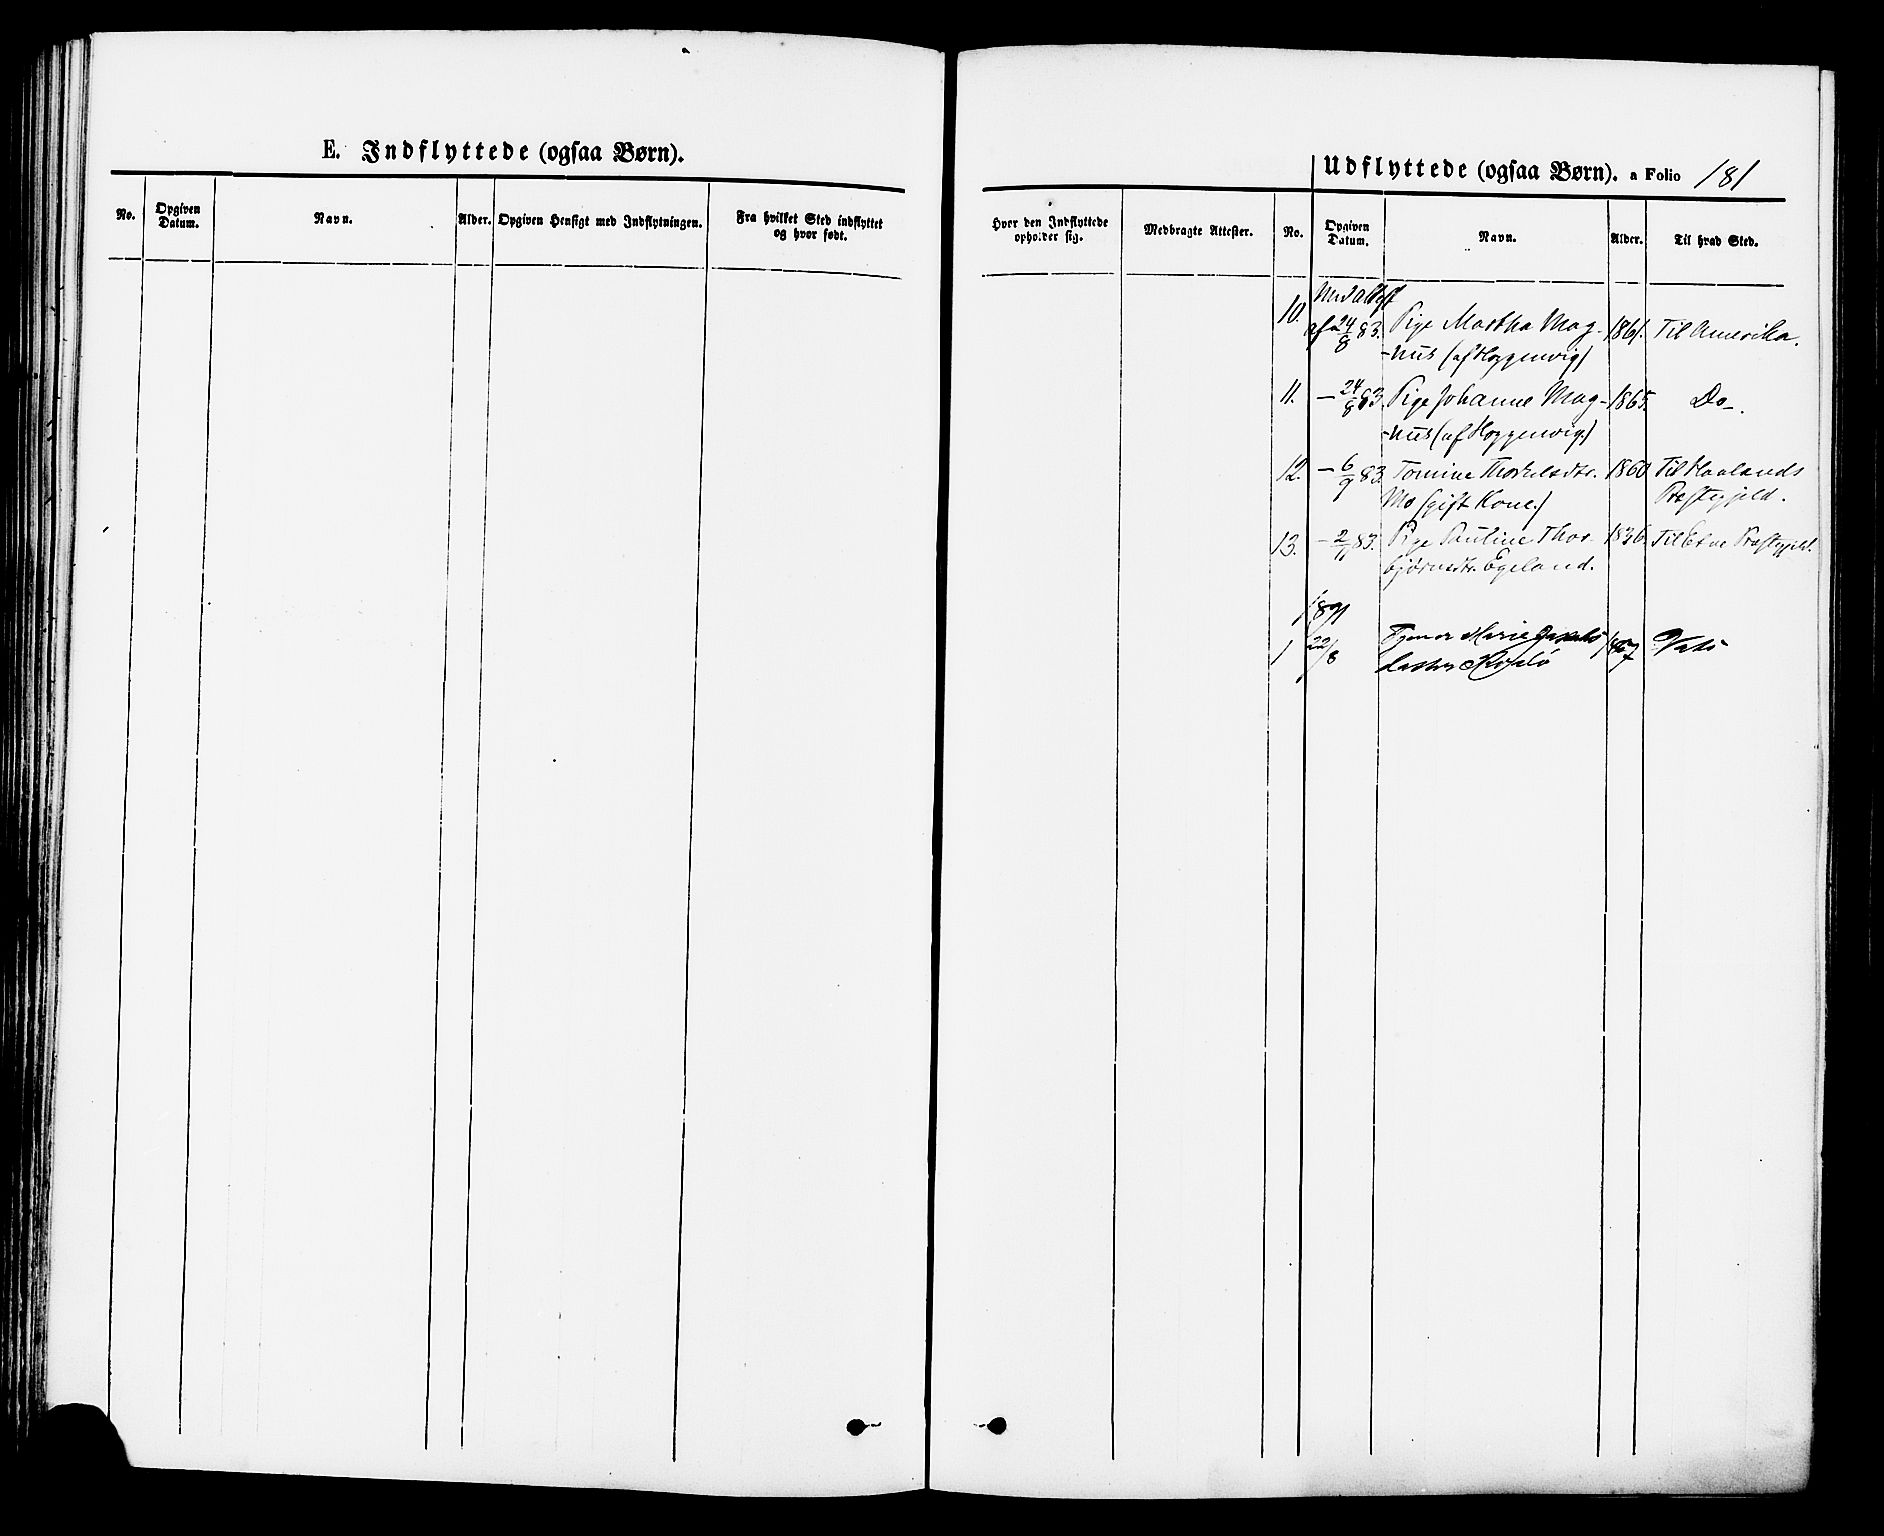 E. Indflyttede (ogsaa Børn).
No.
Opgiven Datum.
Navn.
Alder.
Opgiven Hensigt med Indflytningen.
Fra hvilket Sted indflyttet og hvor født.
Udflyttede (ogsaa Børn). a Folio 181
Hvor den Indflyttede opholder sig.
Medbragte Attester.
No.
Opgiven Datum.
Navn.
Alder.
Til hvad Sted.
10. af 24/8 83. Pige Martha Mag- 1861. Til Amerika.
-nus (af Hoggenvig)
11. — 24/8 83. Pige Johanne Mag- 1865. Do-.
-nus (af Hoggenvig.)
12. — 6/9 83. Tomine Thorkelsdtr. 1860 Til Haalands
Mo (gift Kone.) Præstegjeld.
13. — 2/11 83. Pige Pauline Thor- 1836. Til Etne Præstegjeld.
björnsdtr. Egeland.
1891
1 22/8 Marie
datter